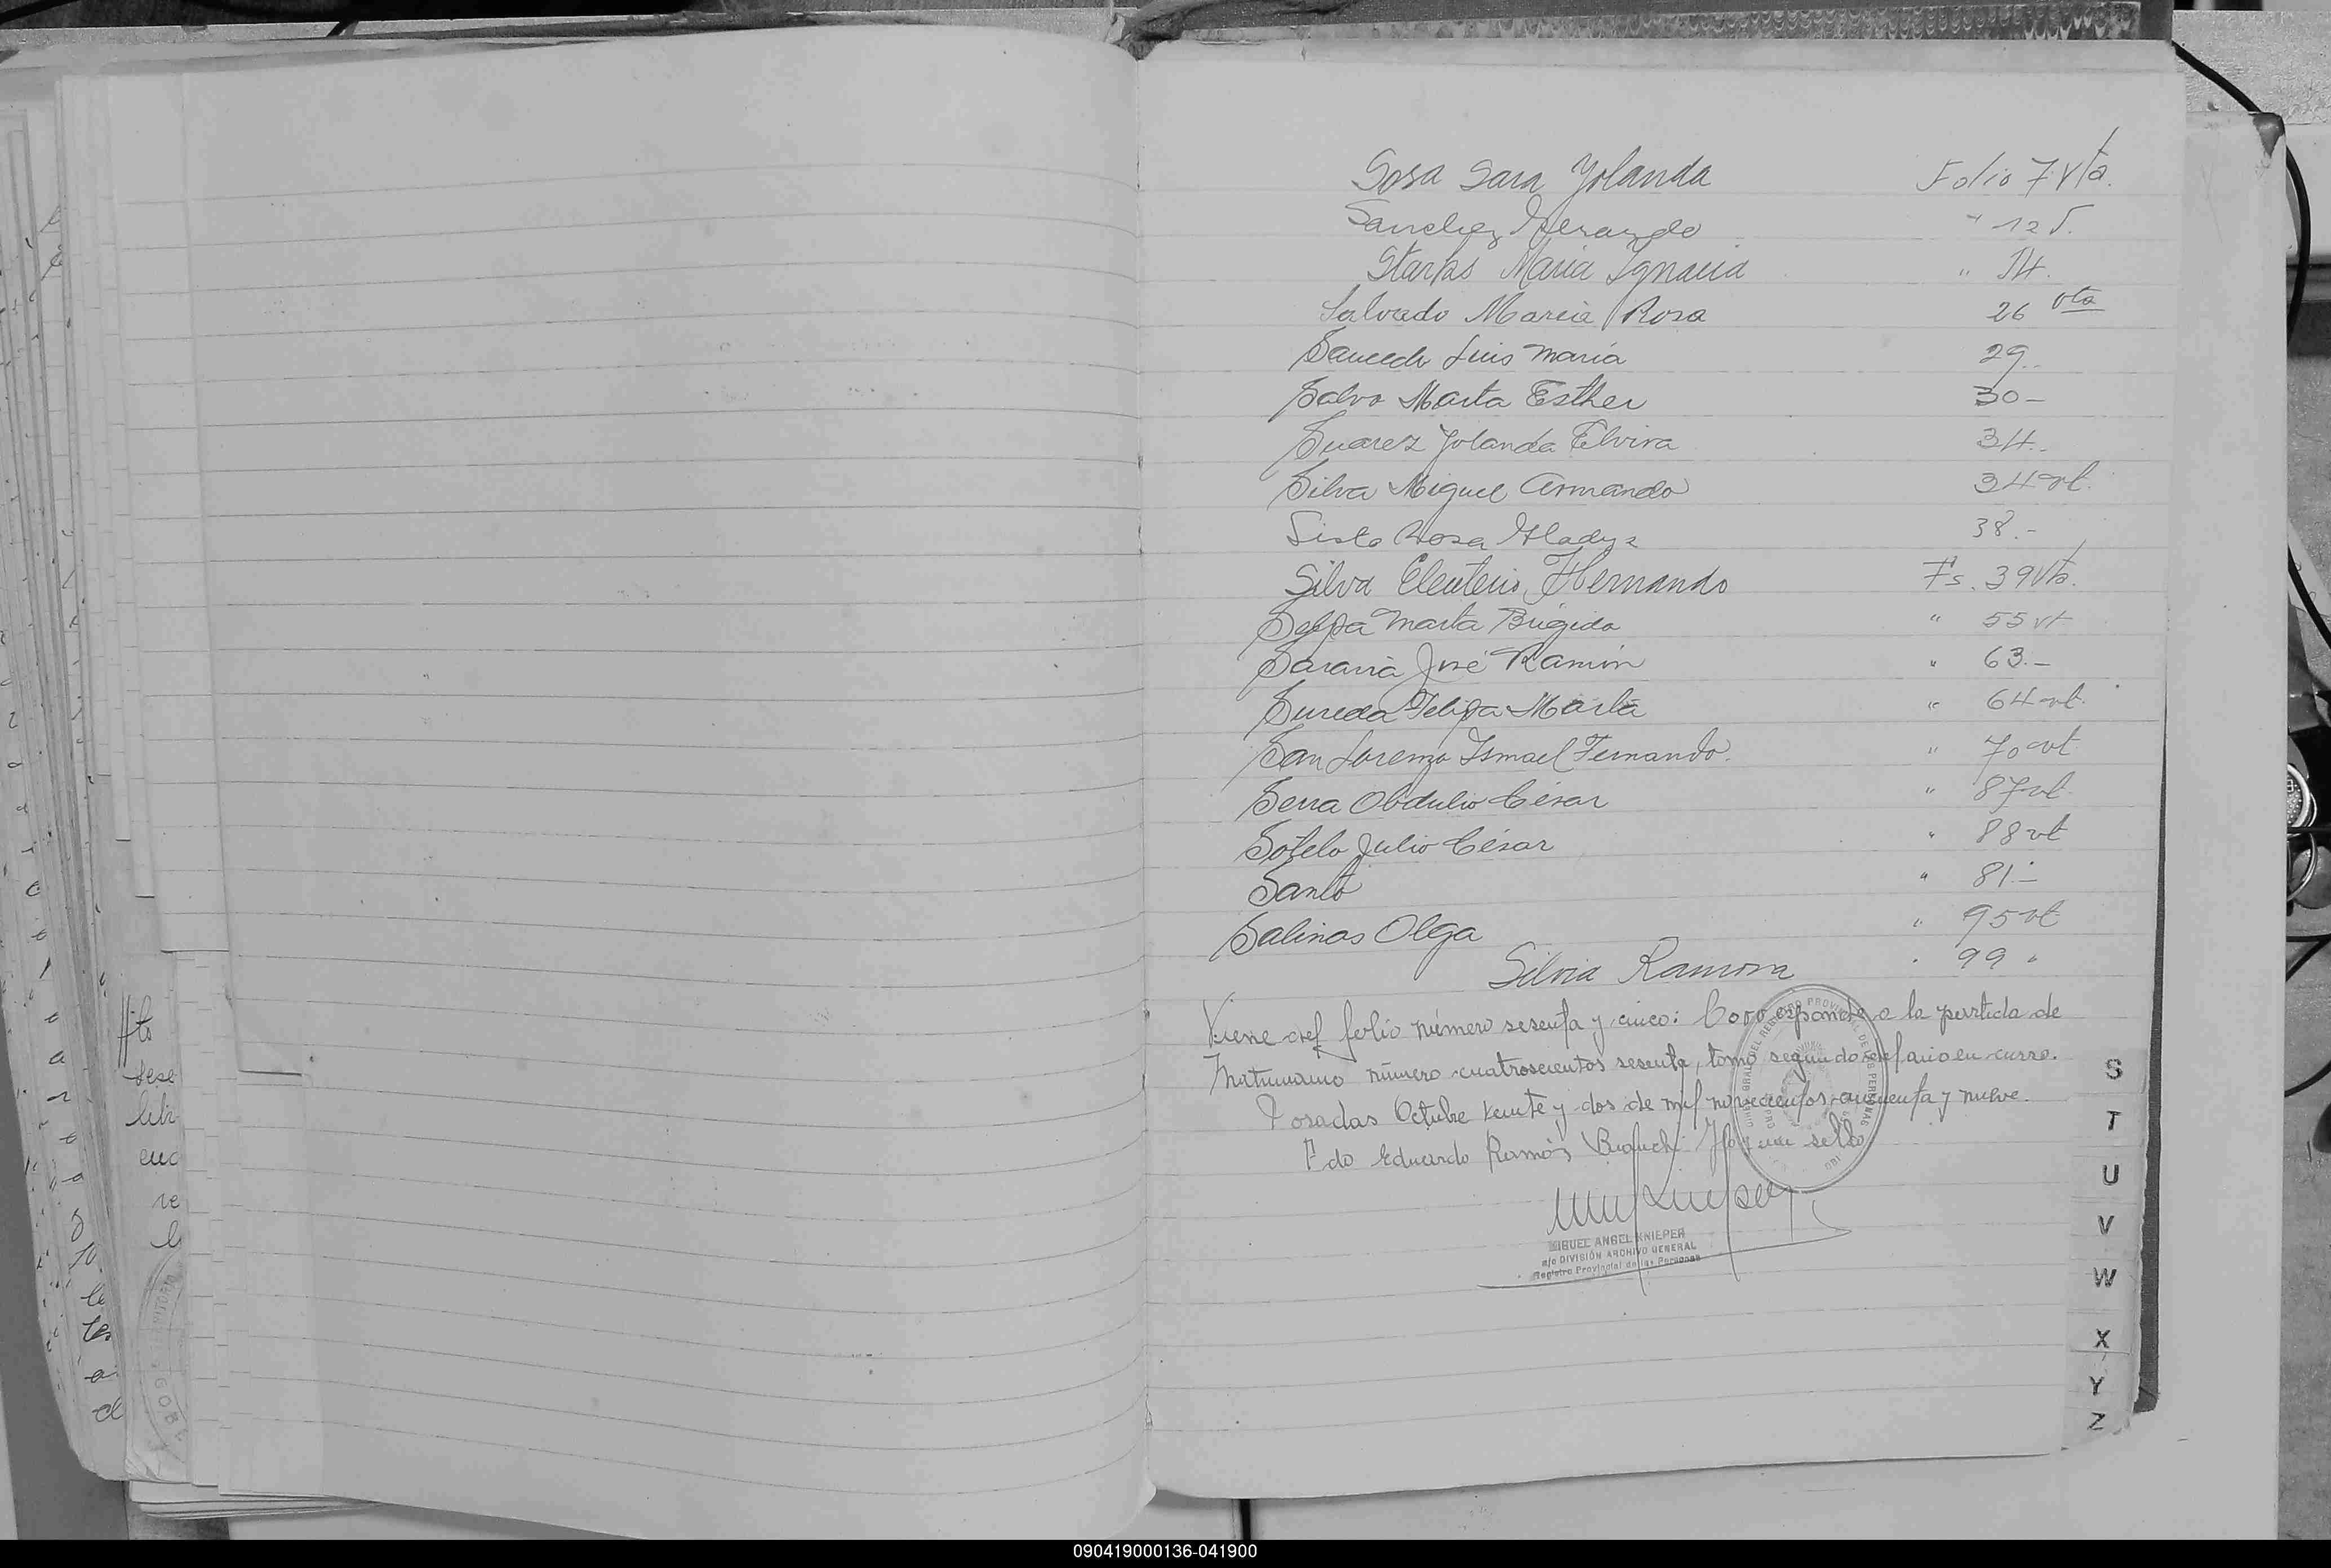 Sosa Sara Yolanda Folio 7 Vta.
Sanchez Gerardo " 12 v.
Starks Maria Ignacia " 14.
Salvado Maria Rosa 26 vta
Saucedo Luis Maria 29..
Salvo Marta Esther 30 -
Suarez Yolanda Elvira 34..
Silva Miguel Armando 34 vt.
Sisto Rosa Gladys 38.-
Silva Eleuterio Hernando Fs. 39 Vta.
Marta Brigida " 55 vt
Sarania José Ramón " 63.-
Sureda Felipa Marta " 64 vt.
San Lorenzo Ismael Fernando. " 70 vt
Serra Obdulio César " 87 vt.
Sotelo Julio César " 88 vt
Santo " 81.-
Salinas Olga " 95 vt
Silvia Ramona " 99 "
Viene del folio número sesenta y cinco: Corresponde a la partida de
Matrimonio número cuatroscientos sesenta, tomo segundo del año en curso.
Posadas Octubre veinte y dos de mil novecientos cincuenta y nueve.
Fdo Eduardo Ramón Hay un sello
MIGUEL ANGEL KNIEPER
a/c DIVISIÓN ARCHIVO GENERAL
Registro Provincial de las Personas
S
T
U
V
W
X
Y
Z
090419000136-041900